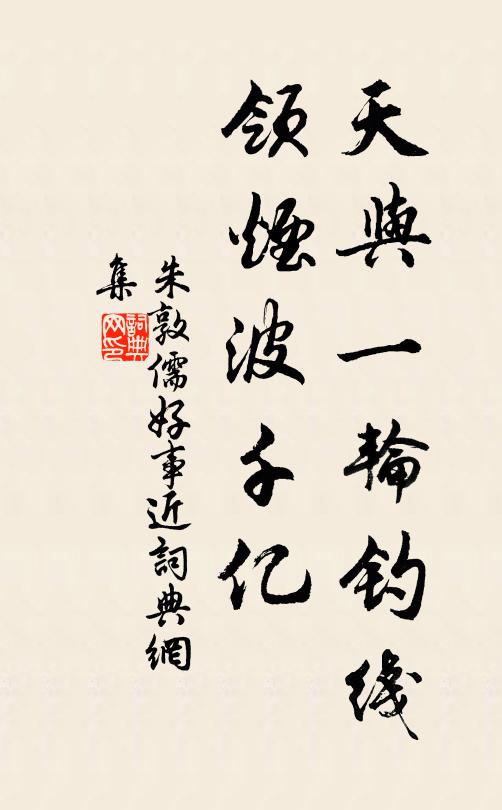 天與一輪钓线
領煙波千亿
朱敦儒好事近詞典網
集
詞典
网印